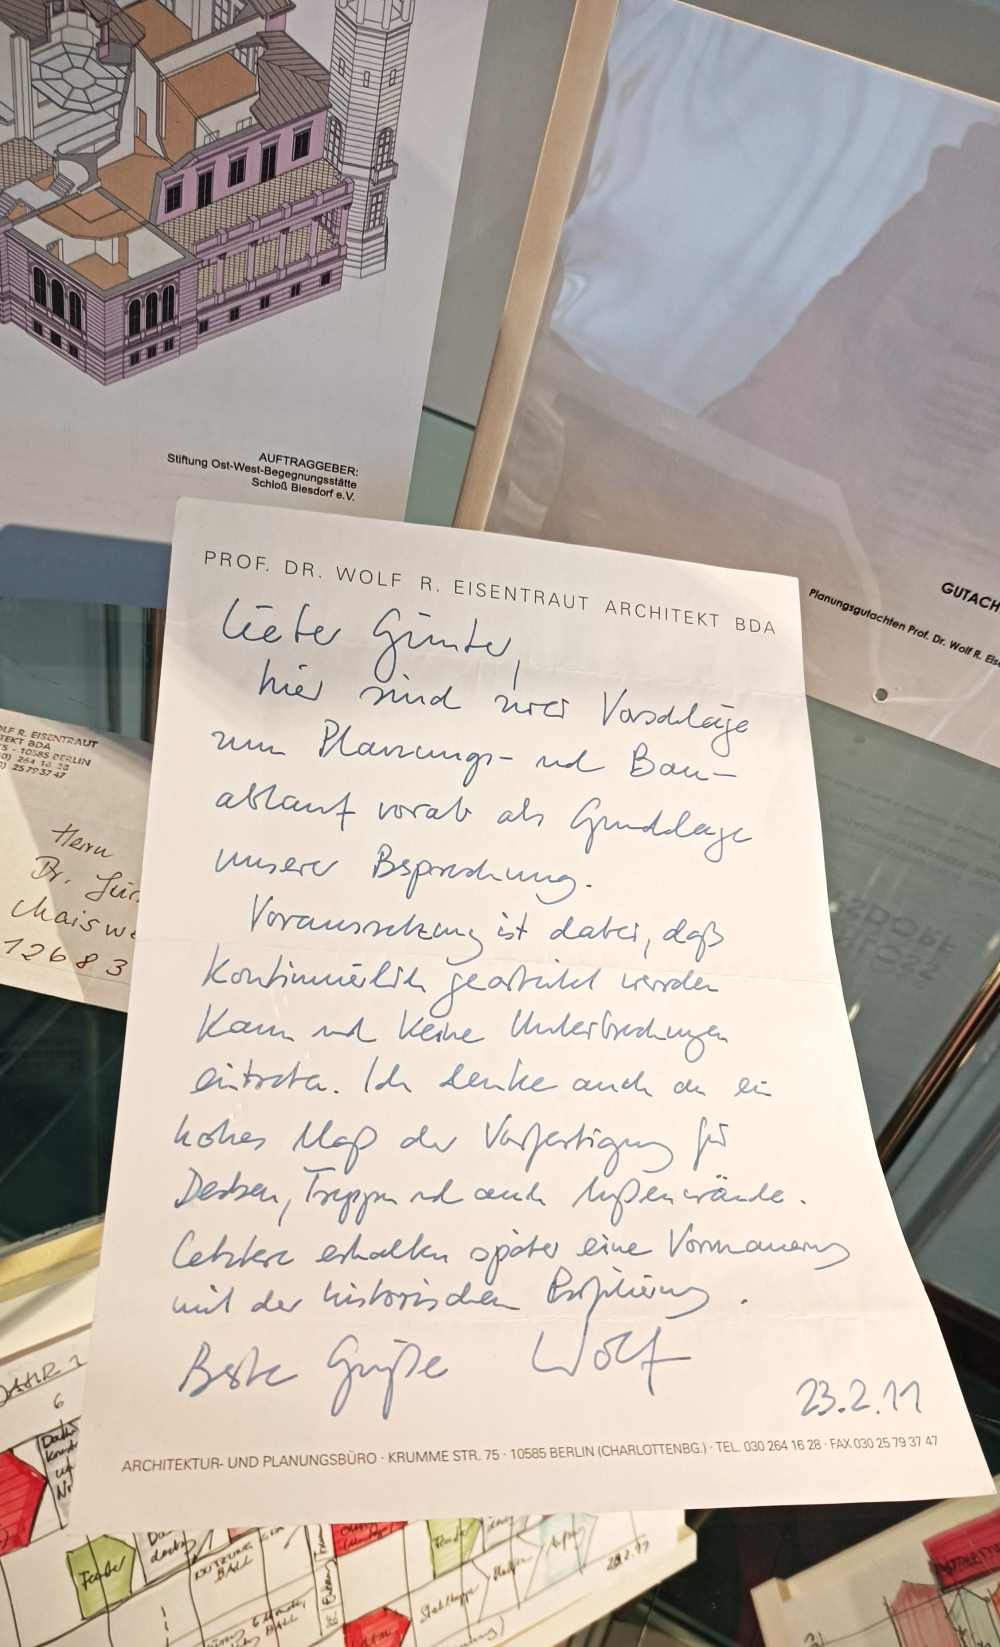 AUFTRAGGEBER:
Stiftung Ost-West-Begegnungsstätte
Schloß Biesdorf e.V.
GUTACH
Planungsgutachten Prof. Dr. Wolf R. Eise
PROF. DR. WOLF R. EISENTRAUT ARCHITEKT BDA
Lieber Günter,
hier sind zwei Vorschläge
zum Planungs- und Bau-
ablauf vorab als Grundlage
unserer Besprechung.
Voraussetzung ist dabei, daß
kontinuierlich gearbeitet werden
kann und keine Unterbrechungen
eintreten. Ich denke auch an ein
hohes Maß der Vorfertigung für
Decken, Treppen und auch Außenwände.
Letztere erhalten später eine Vormauerung
mit der historischen Profilierung.
Beste Grüße Wolf
23.2.11
ARCHITEKTUR- UND PLANUNGSBÜRO · KRUMME STR. 75 · 10585 BERLIN (CHARLOTTENBG.) · TEL. 030 264 16 28 · FAX 030 25 79 37 47
OLF R. EISENTRAUT
TEKT BDA
75 - 10585 BERLIN
0) 264 16 28
0) 25 79 37 47
Herrn
Dr.
12683
JAHR 1
6
NUTZUNG
BALL
28.2.11